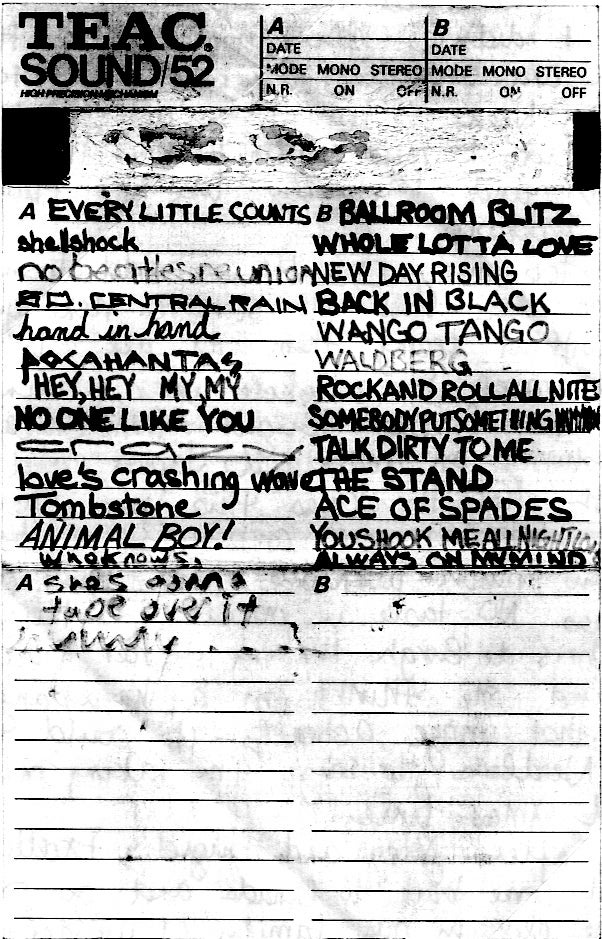 TEAC
SOUND/52
HIGH PRECISION MECHANISM
A
DATE
MODE MONO STEREO
N.R. ON OFF
B
DATE
MODE MONO STEREO
N.R. ON OFF
A EVERY LITTLE COUNTS
shelshock
no beatles reunion
SO. CENTRAL RAIN
hand in hand
POCAHANTAS
HEY, HEY MY, MY
NO ONE LIKE YOU
crazy
love's crashing wave
Tombstone
ANIMAL BOY!
whoknows
B BALLROOM BLITZ
WHOLE LOTTA LOVE
NEW DAY RISING
BACK IN BLACK
WANGO TANGO
WALDBERG
ROCK AND ROLL ALL NITE
SOMEBODY PUT SOMETHING
TALK DIRTY TO ME
THE STAND
ACE OF SPADES
YOU SHOOK ME ALL NIGHT
ALWAYS ON MY MIND
A
B